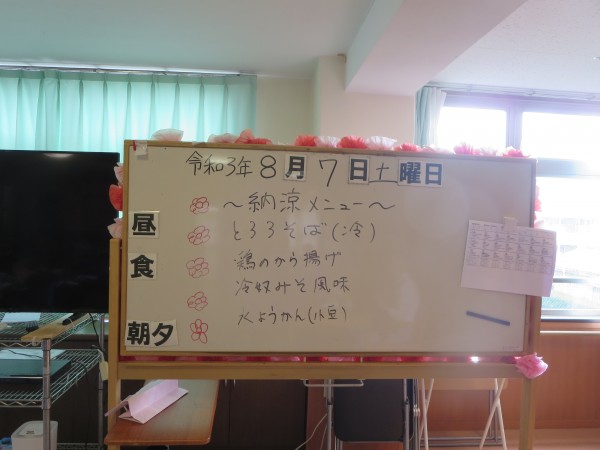 令和3年8月7日土曜日
～納涼メニュー～
昼食
とろろそば(冷)
鶏のから揚げ
冷奴みそ風味
水ようかん(小豆)
朝夕